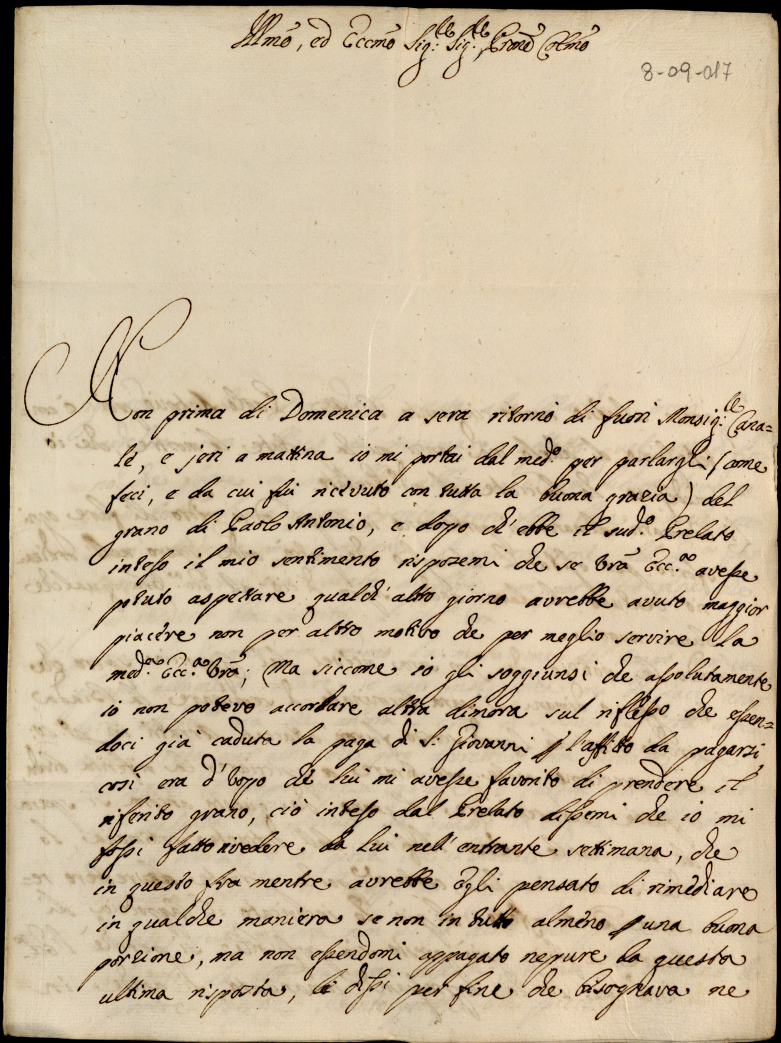 Illmo, ed Eccmo Sig:re Sig:re, Prone Colmo
8-09-017
Non prima di Domenica a sera ritornò di fuori Monsig:re Cana=
le, e jeri a mattina io mi portai dal med:o per parlargli (come
feci, e da cui fui ricevuto con tutta la buona grazia) del
grano di Paolo Antonio, e dopo ch'ebbe il sud:o Prelato
inteso il mio sentimento risposemi che se Vra Ecc:za avesse
potuto aspettare qualch'altro giorno avrebbe avuto maggior
piacére non per altro motivo che per meglio servire la
med:a Ecc:za Vra; Ma siccome io gli soggiunsi che assolutamente
io non potevo accordare altra dimora sul riflesso che essen=
doci già caduta la paga di S: Giovanni p l'affitto da pagarsi,
così era d'uopo che lui mi avesse favorito di prendere il
riferito grano, ciò inteso dal Prelato dissemi che io mi
fossi fatto rivedere da lui nell'entrante settimana, che
in questo fra mentre avrebbe Egli pensato di rimediare
in qualche maniera se non in tutto alméno p una buona
porzione, ma non essendomi appagato nepure da questa
ultima risposta, li dissi per fine che bisognava ne